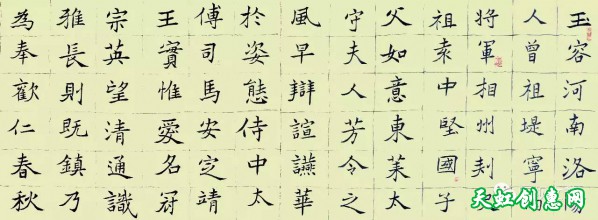 玉容河南洛陽
人曾祖堤寧
將軍相州刾
祖袁中堅國子
父如意東莱太
守夫人芳令之
風早辯諠讌華
於姿態侍中太
傅司馬安定靖
王實惟愛名冠
宗英望清通識
雅長則既鎮乃
為奉歡仁春秋
天虹创意网